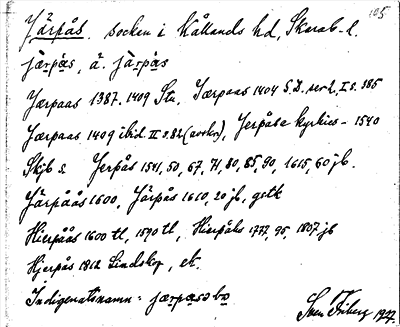 105
Järpås, socken i Kållands hd, Skarab. l.
jærpas, ä. jàrpàs
Jærpaas 1387. 1409 Stu. Iærpaas 1404 S.D. ser. I s. 385
Jærpaas 1409 ibid. II s. 82 (avskr), Jerpåse kyrkies - 1540
Skjb 2 Jerpås 1541, 50, 67, 71, 80, 85, 90, 1615, 60 jb.
Järpåås 1600, Järpås 1610, 20 jb, gstk
Hierpåås 1600 tl, 1590 tl, Hierpåhs 1777, 95, 1837 jb
Hjerpås 1812 Lindskog, et.
Indigenatsnamn: jærpasabo
Sven Friberg 1927.